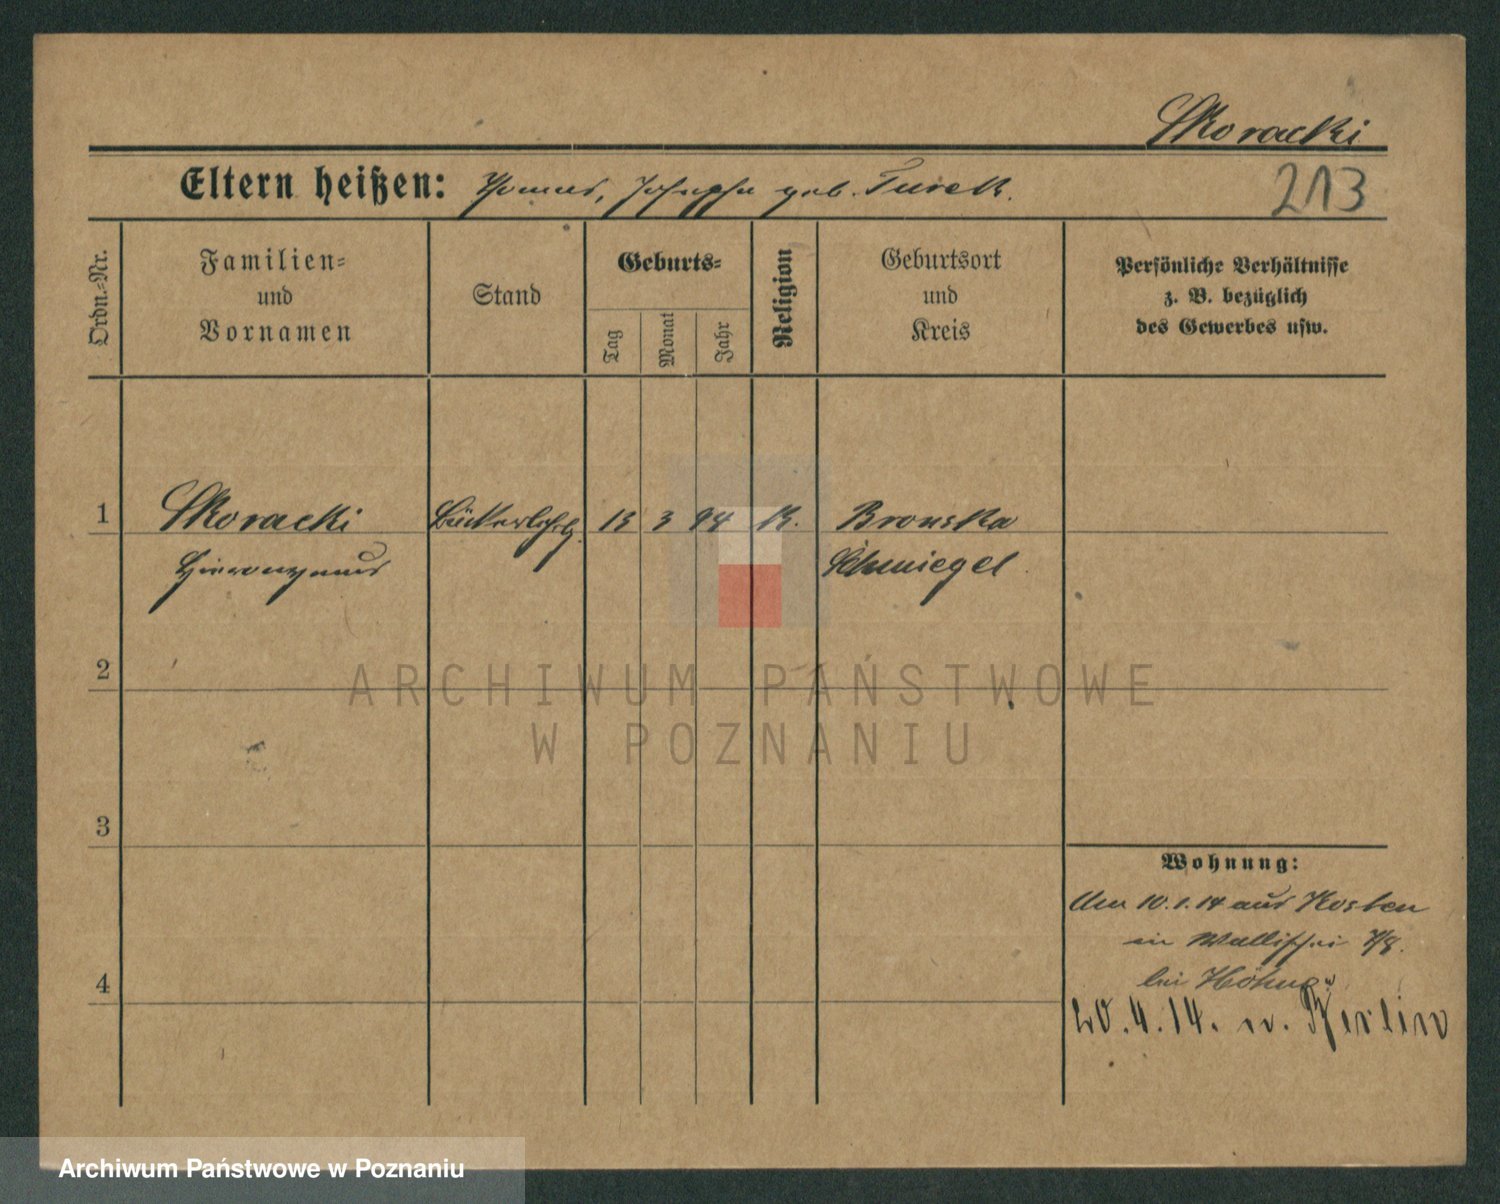 Skoracki
Eltern heißen: Thomas, Josepha geb. Turek.
213
Ordn.-Nr.
Familien-
und
Vornamen
Stand
Geburts-
Tag
Monat
Jahr
Religion
Geburtsort
und
Kreis
Persönliche Verhältnisse
z. B. bezüglich
des Gewerbes usw.
1 Skoracki Bäckerlehrlg. 13 3 94 K. Bronska
Hieronymus Schmiegel
2
ARCHIWUM PAŃSTWOWE
W POZNANIU
3
Wohnung:
Am 10.1.14 aus Kosten
in Wallischei 7/8.
bei Höhne
4
20.4.14. n. Berlin
Archiwum Państwowe w Poznaniu